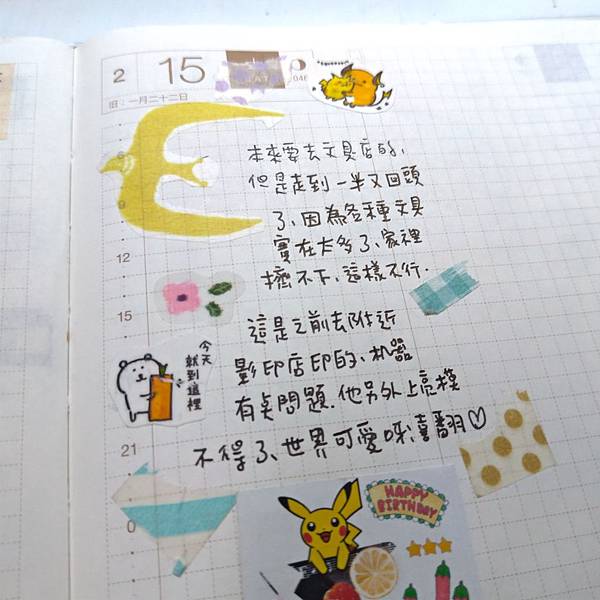 2 15 046
旧：一月二十二日
本來要去文具店的、
但是走到一半又回頭
了、因為各種文具
實在太多了、家裡
擠不下、這樣不行.
這是之前去附近
影印店印的、机器
有点問題.他另外上亮模
不得了、世界可愛呀喜翻♡
今天
就到這裡
9
12
15
21
0
HAPPY
BIRTHDAY